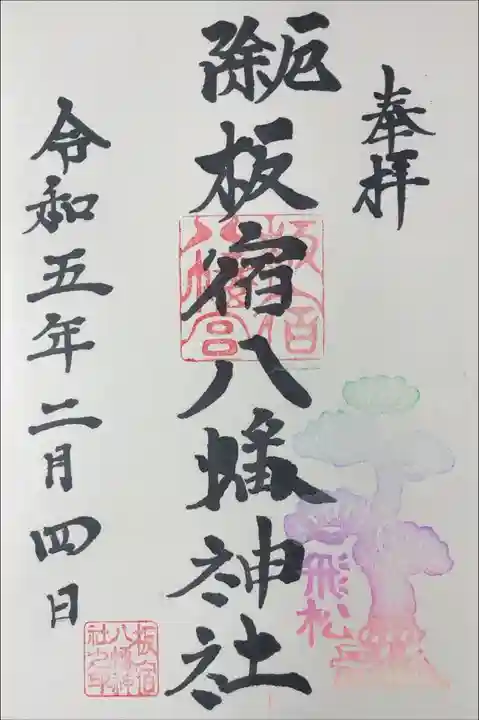 奉拝
厄除
板宿八幡神社
板宿
八幡宮
飛松
令和五年二月四日
板宿
八幡神
社之印